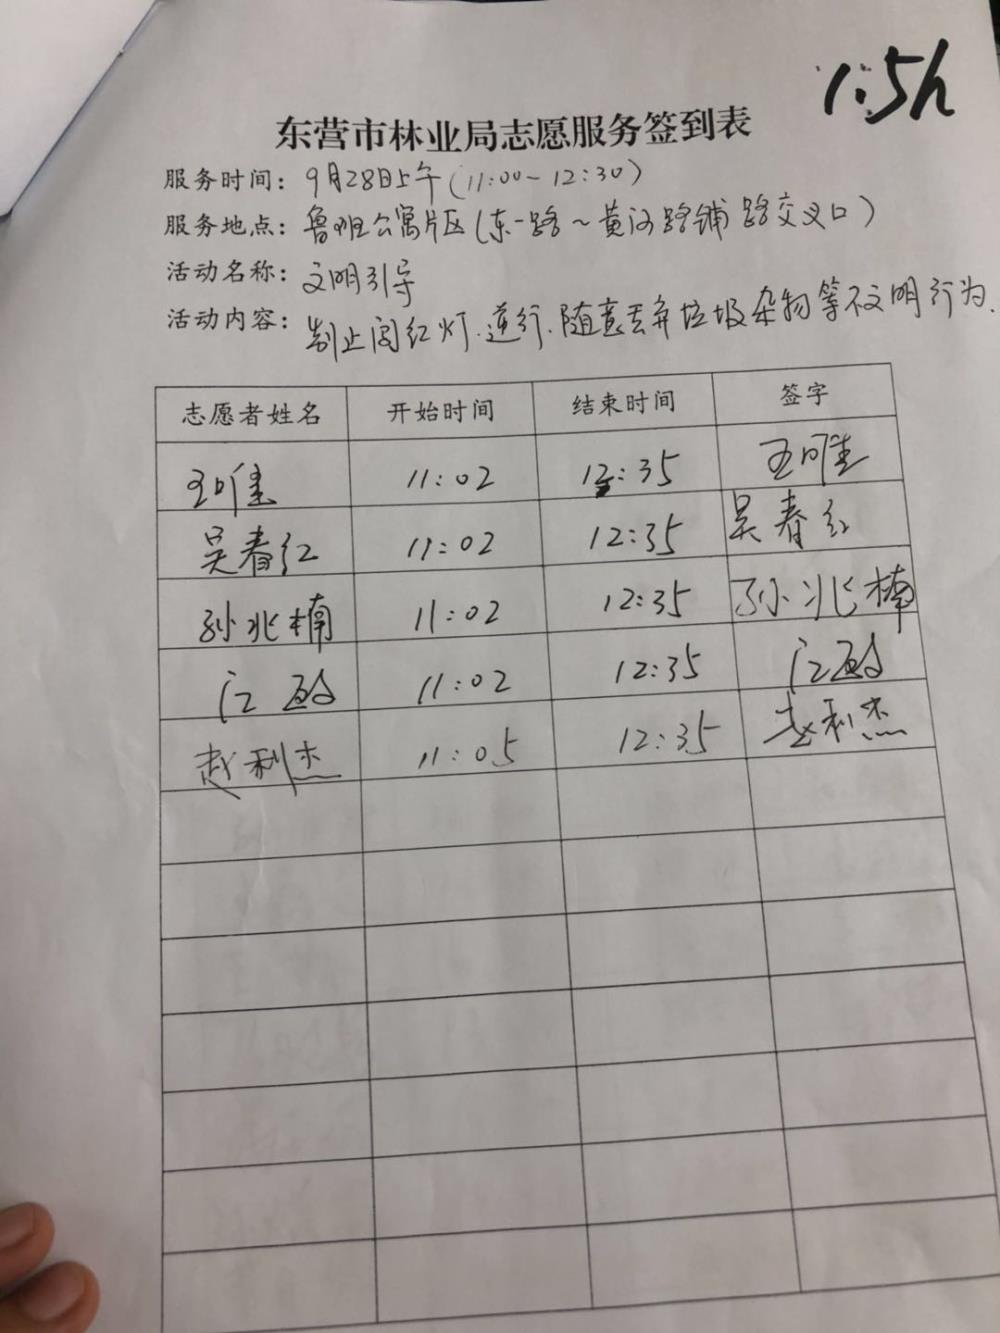 1.5h
东营市林业局志愿服务签到表
服务时间：9月28日上午(11:00~12:30)
服务地点：鲁班公寓片区(东一路~黄河路辅路交叉口)
活动名称：文明引导
活动内容：制止闯红灯.逆行.随意丢弃垃圾杂物等不文明行为.
志愿者姓名 开始时间 结束时间 签字
11:02 12:35
吴春红 11:02 12:35 吴春红
孙兆楠 11:02 12:35 孙兆楠
11:02 12:35
赵利杰 11:05 12:35 赵利杰